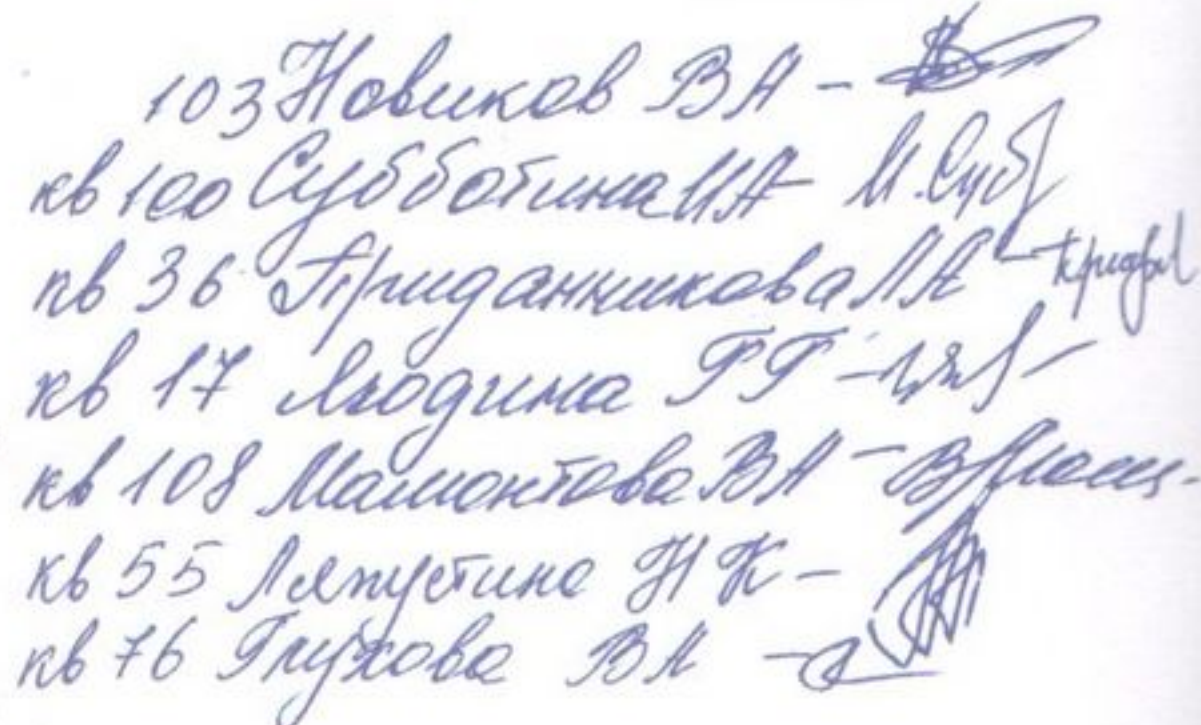 103 Новиков ВА -
кв 100 Субботина ИА - М.Суб
кв 36 Приданникова ЛА -
кв 17 Ягодина ГГ -
кв 108 Мамонтова ВА -
кв 55 Ляпустина НК -
кв 76 Глухова ВА -